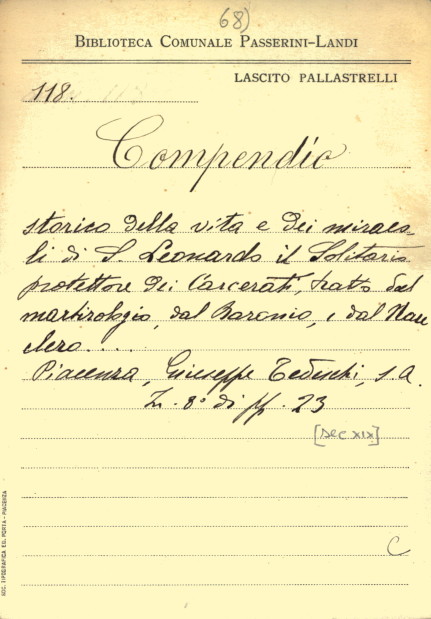 68)
BIBLIOTECA COMUNALE PASSERINI-LANDI
LASCITO PALLASTRELLI
118.
Compendio
storico della vita e dei miraco-
li di S. Leonardo il Solitario
protettore dei Carcerati, tratto dal
martirologio, dal Baronio, e dal
clero....
Piacenza, Giuseppe Tedeschi, s.a.
In-8° di pp. 23
[sec XIX]
C
SOC. TIPOGRAFICA ED. PORTA - PIACENZA